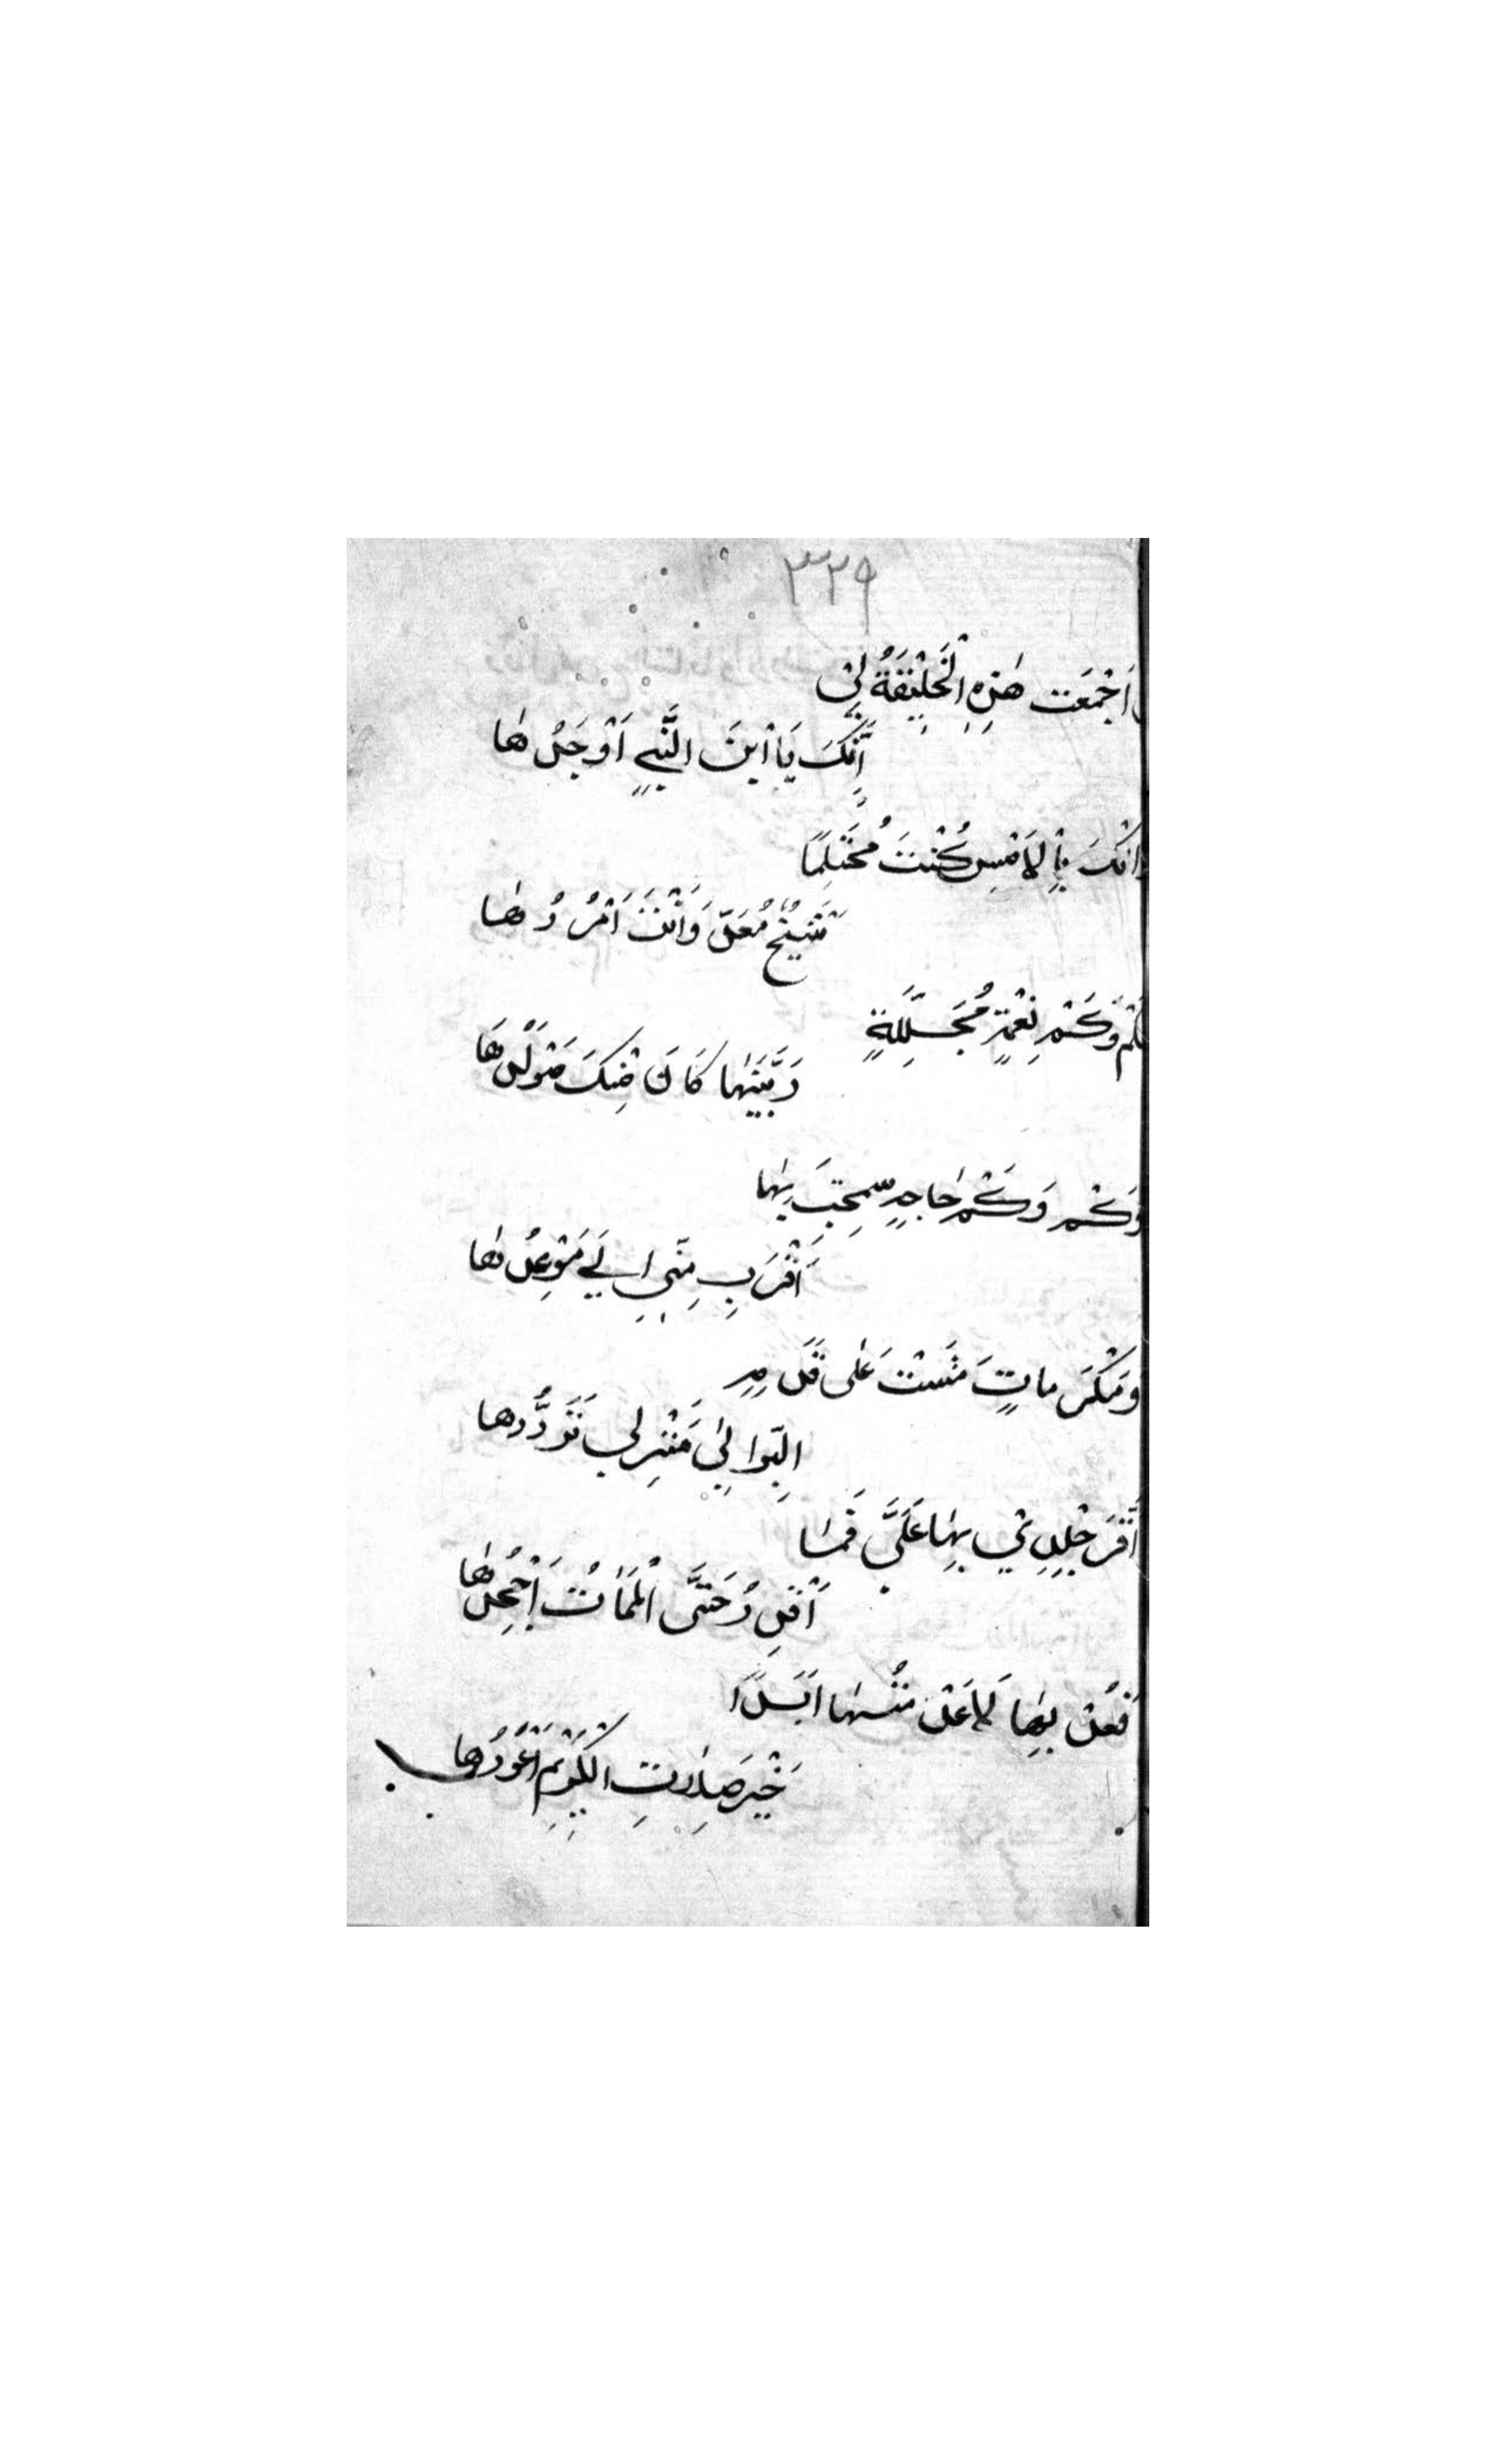 ٣٢٩
اَجْمَعَت هٰذِهِ الْخَلِيْقَةُ لِيْ
اِنَّكَ يَا ابْنَ النَّبِيِّ اَوْحَدُهٰا
اَنْكَ بِالْاَمْسِ كُنْتَ مُحْتَلِمًا
شَيْخُ مُعَدٍّ وَاَنْتَ اَمْرَدُهٰا
وَكَمْ نِعْمَةٍ مُجَلِّلَةٍ
رَبَّيْتَهٰا كَانَ مِنْكَ مَوْلِدُهَا
وَكَمْ وَكَمْ حٰاجَةٍ سَمِحْتَ بِهٰا
اَقْرَبُ مِنّي اِلَيَّ مَوْعِدُهٰا
وَمَكْرَمَاتٍ مَشَتْ عَلٰى قَدَمِ
الْبِرِّ اِلٰى مَنْزِلِي تَرَدُّدُها
اَقَرَّ جِلْدِيْ بِهٰا عَلَيَّ فَمٰا
اَقْدِرُ حَتَّى الْمَمَاتِ اَجْحَدُهٰا
فَعُدْ بِهٰا لَا عَدِمْتُهٰا اَبَدًا
خَيْرُ صِلاٰتِ الْكَرِيْمِ اَعْوَدُهٰا